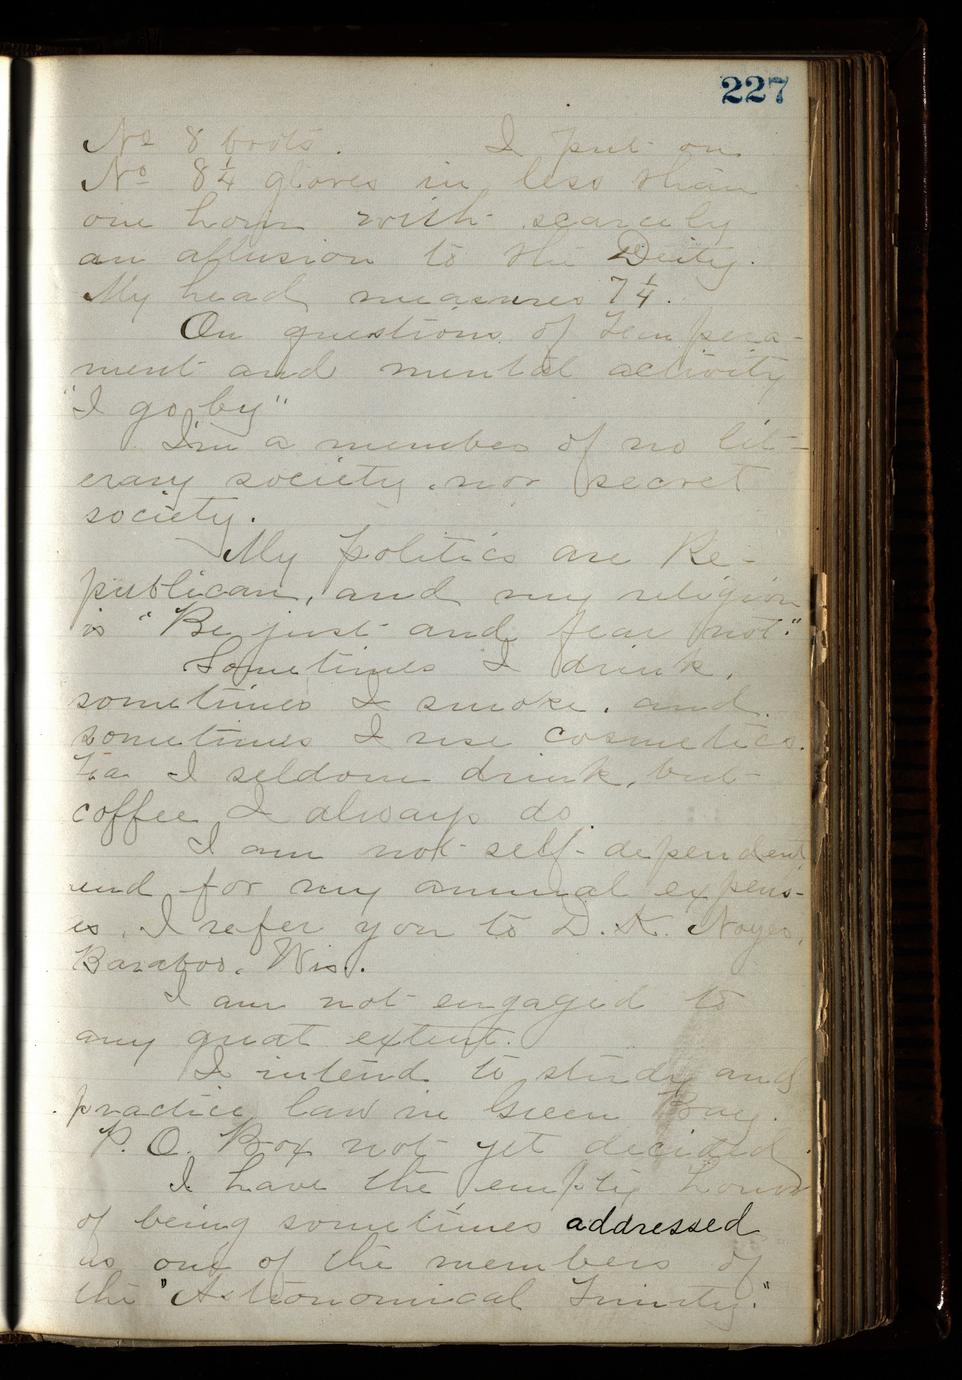 227
No 8 boots. I put on
No 8 1/4 gloves in less than
one hour with scarcely
an allusion to the Deity.
My head measures 7 1/4.
On questions of tempera-
ment and mental activity
"I go by"
I'm a member of no lit-
erary society, nor secret
society.
My politics are Re-
publican, and my religion
is "Be just and fear not."
Sometimes I drink,
sometimes I smoke, and
sometimes I use cosmetics.
Tea I seldom drink, but
coffee I always do.
I am not self-dependent
and for my annual expens-
es, I refer you to D. K. Noyes,
Baraboo, Wis.
I am not engaged to
any great extent.
I intend to study and
practice law in Green Bay.
P. O. Box not yet decided.
I have the empty honor
of being sometimes addressed
as one of the members of
the "Astronomical Trinity."